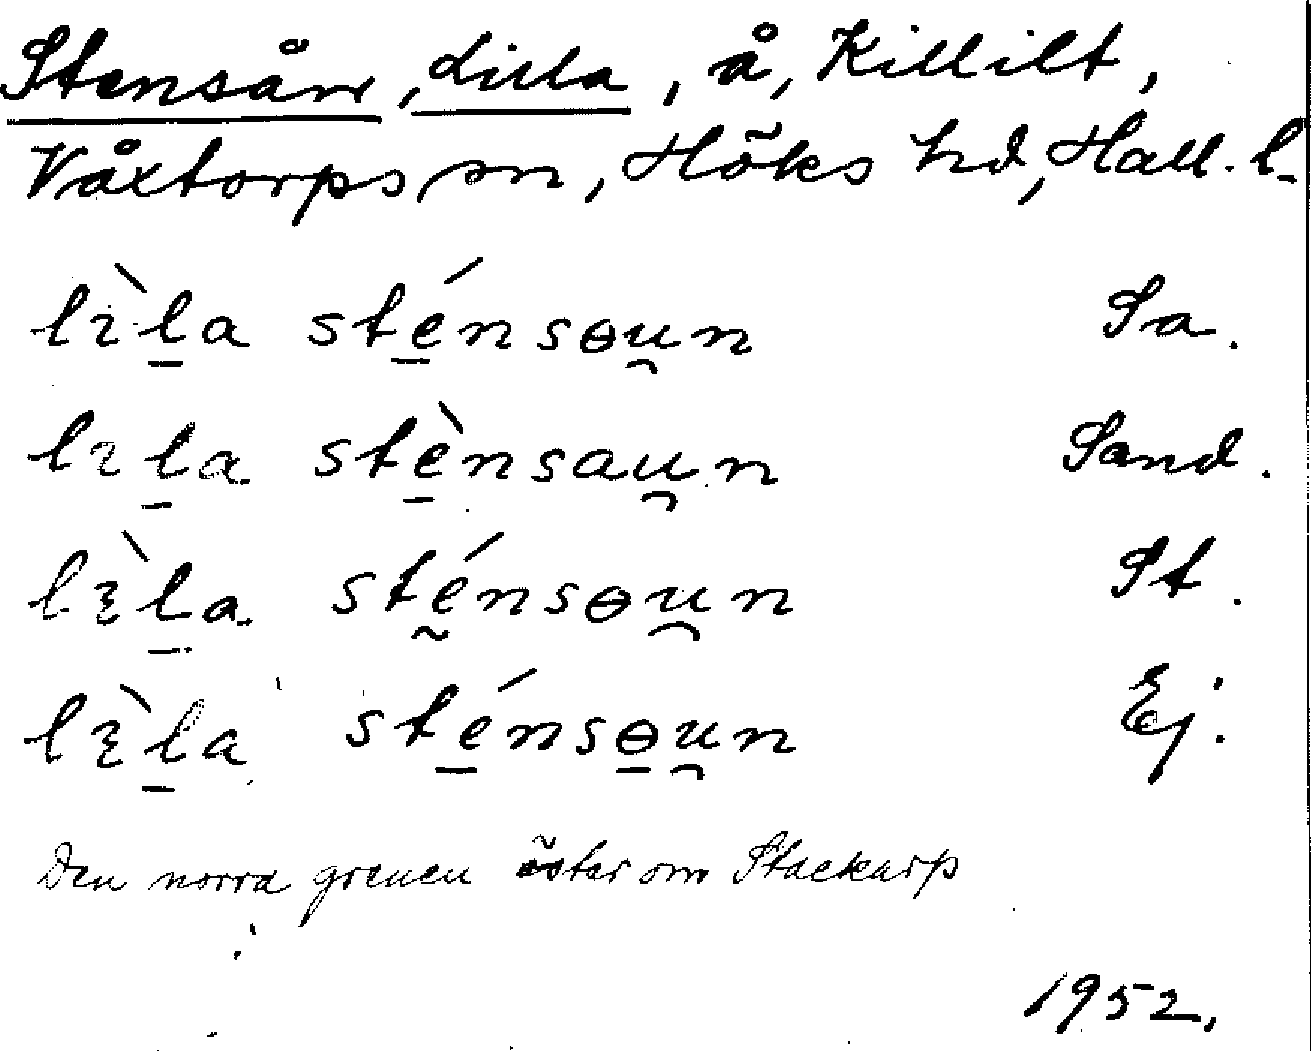 Stensån, Lilla, å, Killilt,
Våxtorps sn, Höks hd, Hall. l.
lɪ̀l̠a sté̠nsɵu̯n Sa.
lɪl̠a stè̠nsau̯n Sand.
lɪ̀l̠a stḛ́nsɵu̯n St.
lɪ̀l̠a sté̠nsɵ̠u̯n Ej.
Den norra grenen öster om Stackarp
1952.